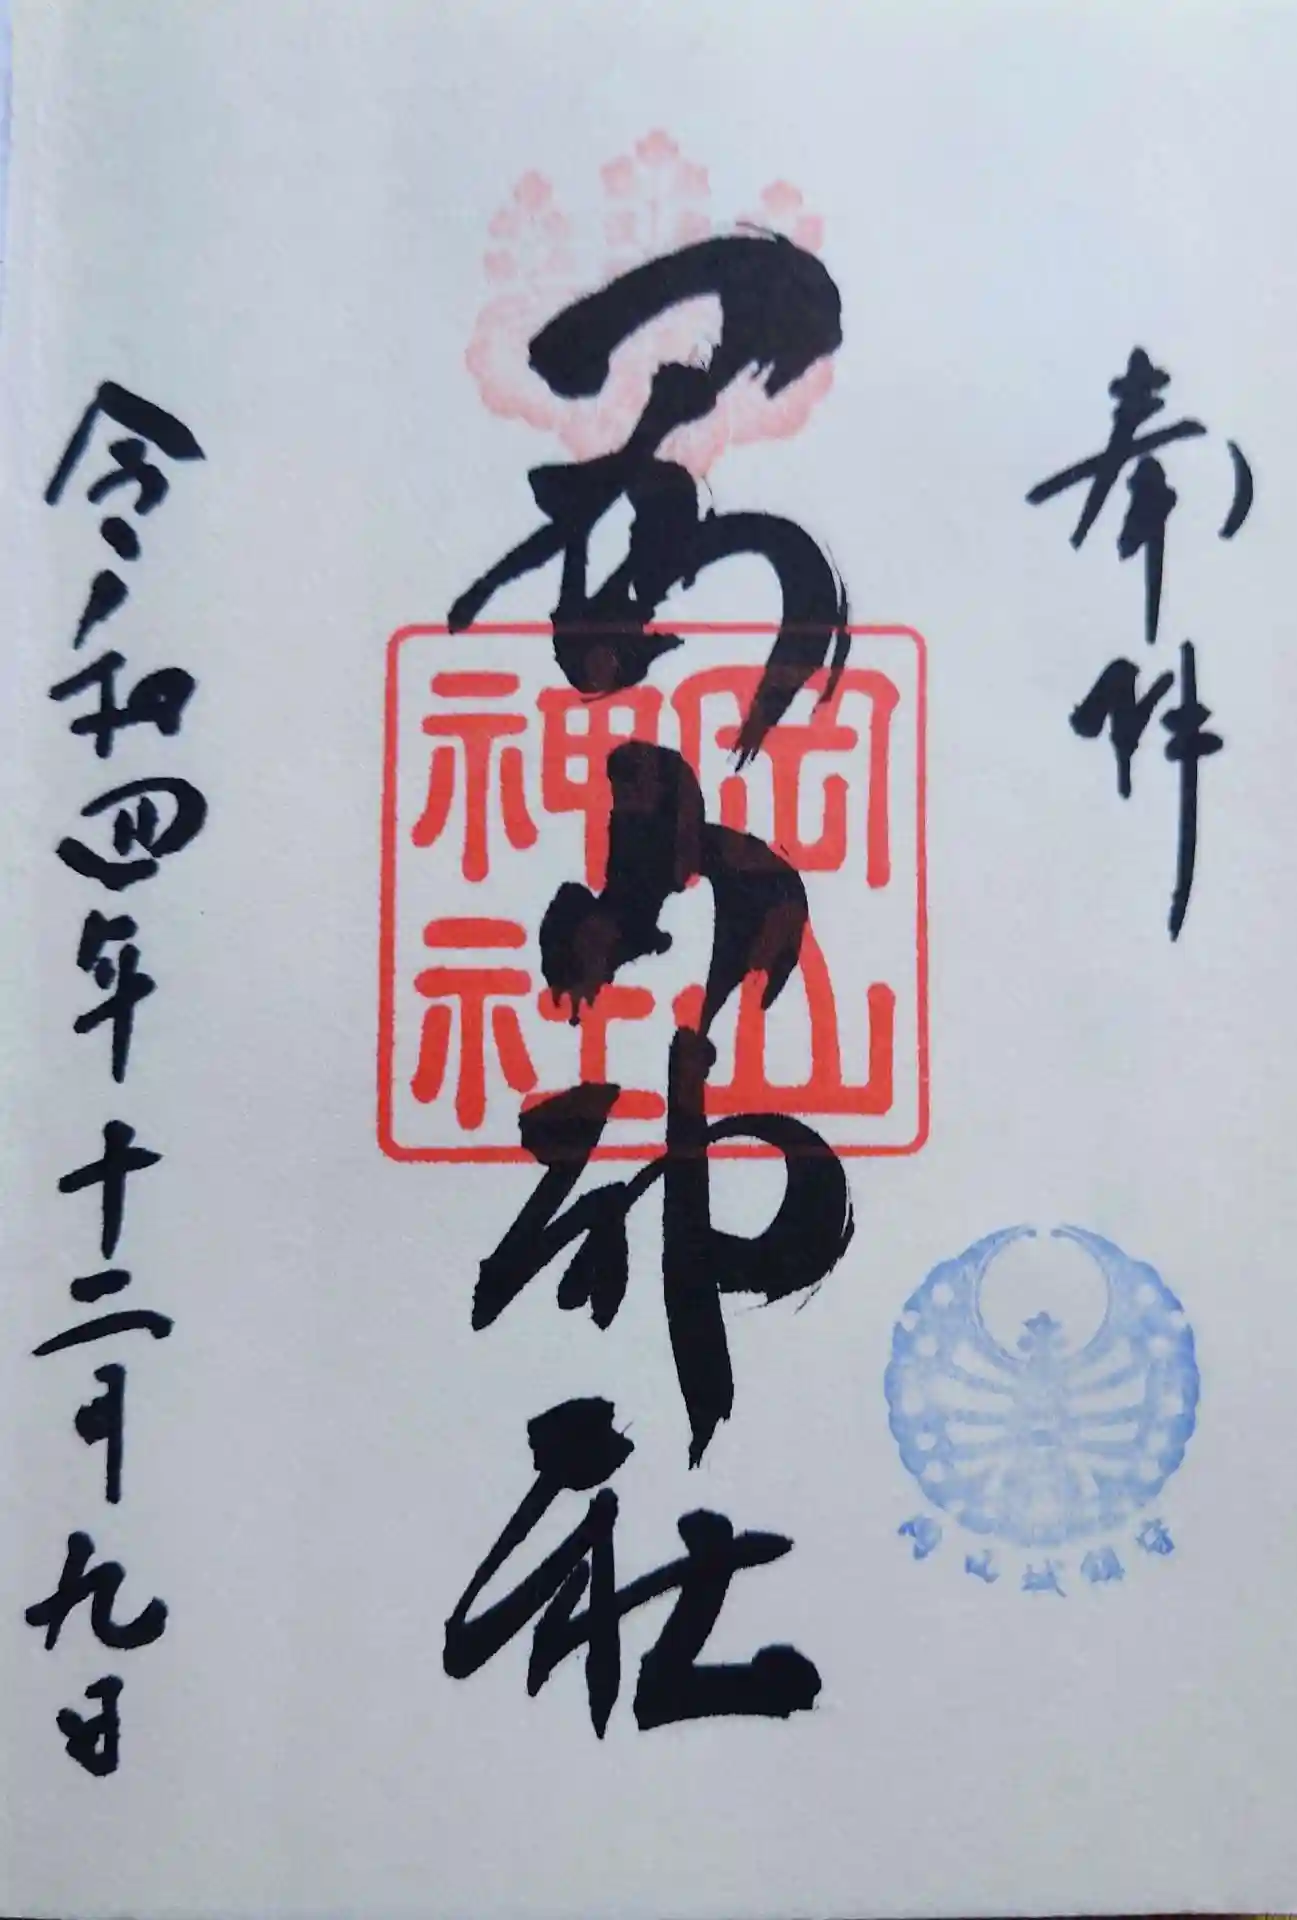 奉拝
岡山神社
岡山
神社
岡山城鎮守
令和四年十二月九日